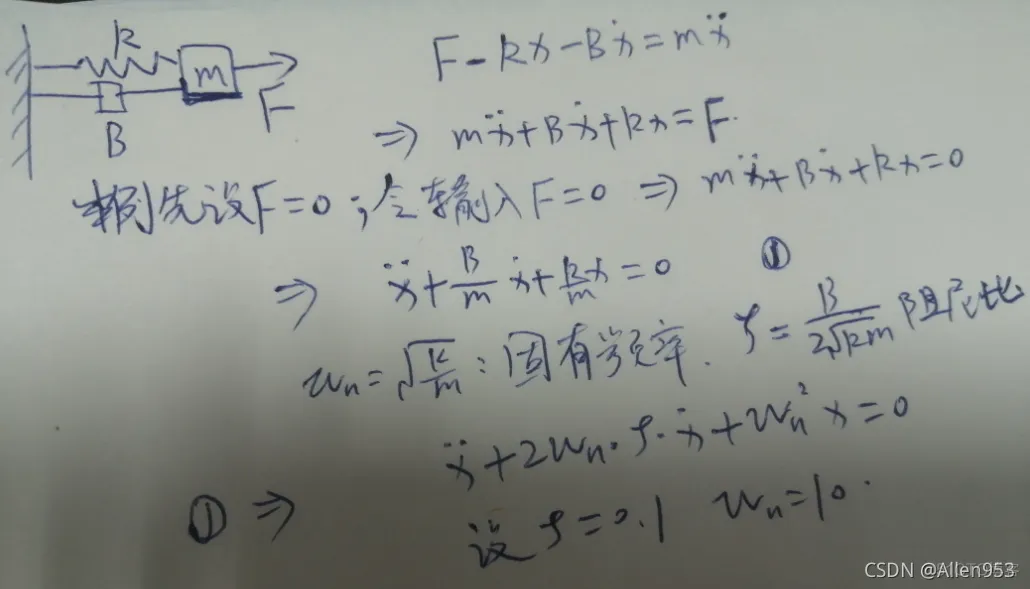 k
m
F
B
F - kx - Bẋ = mẍ
⇒ mẍ + Bẋ + kx = F.
先设F=0;令输入F=0 ⇒ mẍ + Bẋ + kx = 0
⇒ ẍ + B/m ẋ + k/m x = 0 ①
wn = √(k/m) : 固有频率. ζ = B/(2√(km)) 阻尼比
① ⇒ ẍ + 2wn·ζ·ẋ + wn² x = 0
设 ζ = 0.1 wn = 10.
CSDN @Allen953